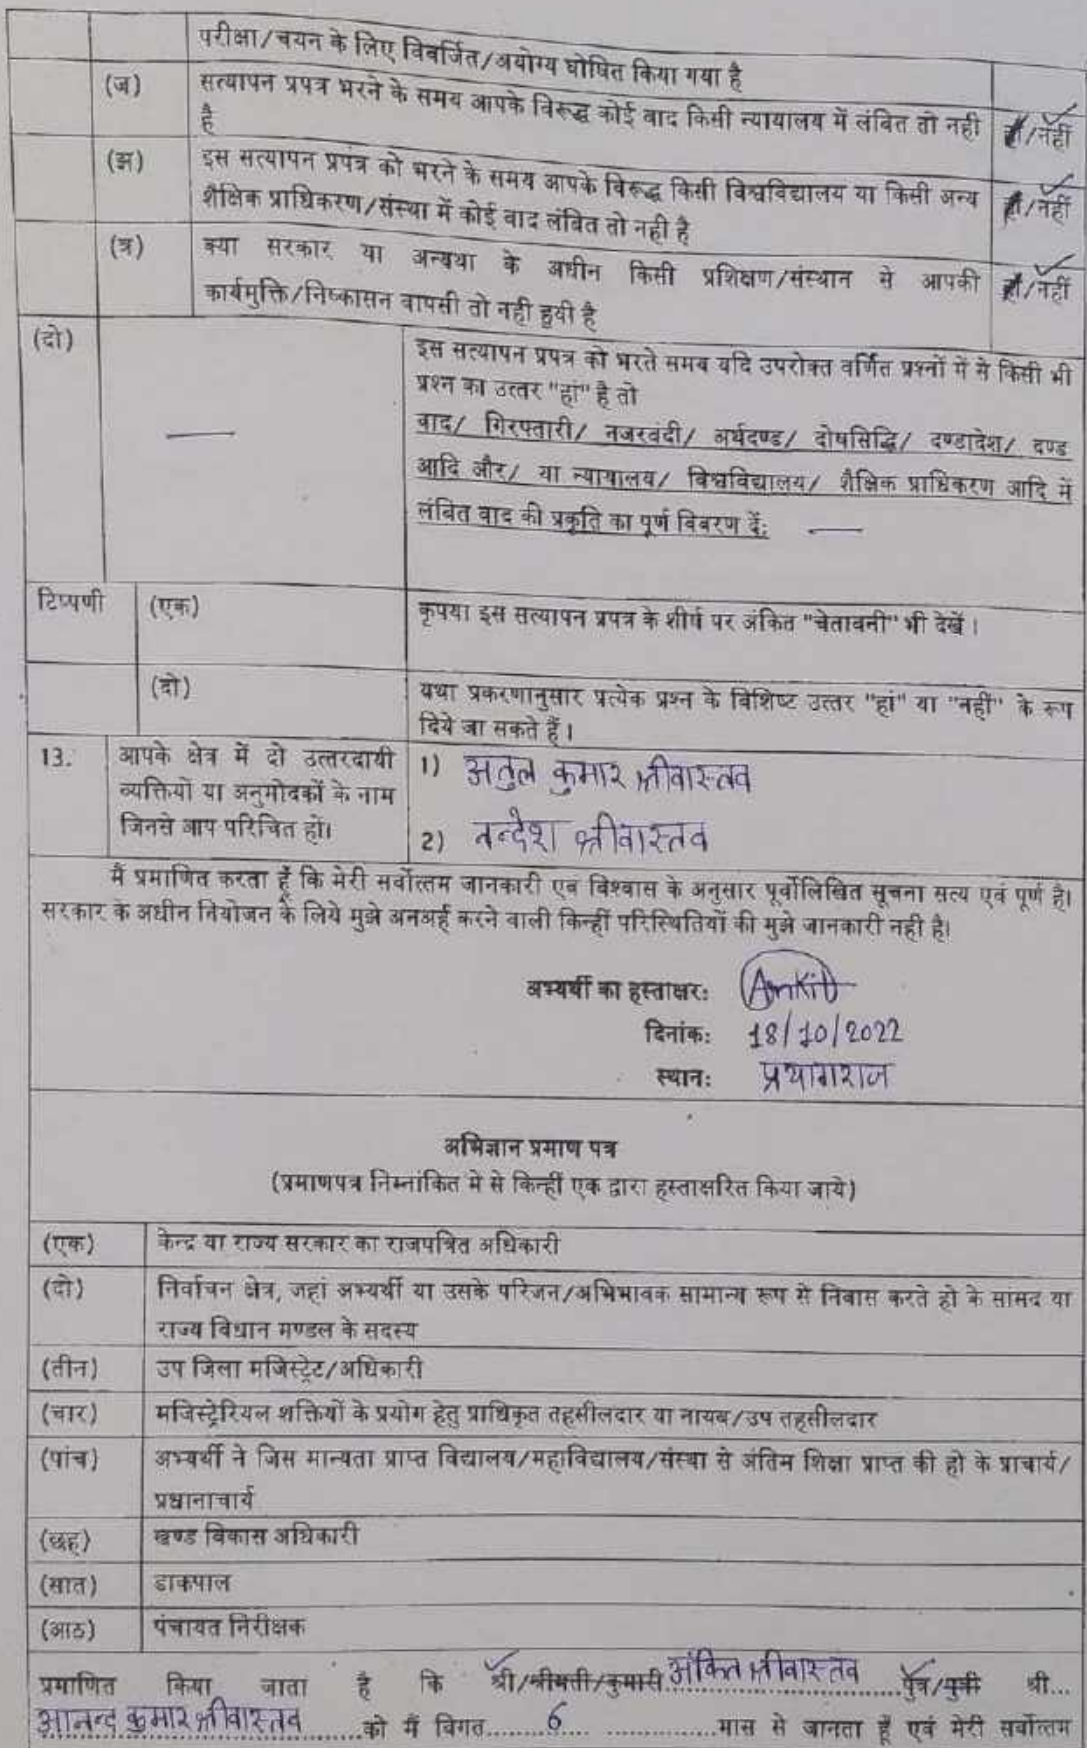 परीक्षा/चयन के लिए विवर्जित/अयोग्य घोषित किया गया है
(ज) सत्यापन प्रपत्र भरने के समय आपके विरूद्ध कोई वाद किसी न्यायालय में लंबित तो नही हां/नहीं
है
(झ) इस सत्यापन प्रपत्र को भरने के समय आपके विरूद्ध किसी विश्वविद्यालय या किसी अन्य हां/नहीं
शैक्षिक प्राधिकरण/संस्था में कोई वाद लंबित तो नही है
(ञ) क्या सरकार या अन्यथा के अधीन किसी प्रशिक्षण/संस्थान से आपकी हां/नहीं
कार्यमुक्ति/निष्कासन वापसी तो नही हुयी है
(दो) इस सत्यापन प्रपत्र को भरते समय यदि उपरोक्त वर्णित प्रश्नों में से किसी भी
प्रश्न का उत्तर "हां" है तो
वाद/ गिरफ्तारी/ नजरबंदी/ अर्थदण्ड/ दोषसिद्धि/ दण्डादेश/ दण्ड
आदि और/ या न्यायालय/ विश्वविद्यालय/ शैक्षिक प्राधिकरण आदि में
लंबित वाद की प्रकृति का पूर्ण विवरण दें: —
टिप्पणी (एक) कृपया इस सत्यापन प्रपत्र के शीर्ष पर अंकित "चेतावनी" भी देखें।
(दो) यथा प्रकरणानुसार प्रत्येक प्रश्न के विशिष्ट उत्तर "हां" या "नहीं" के रूप
दिये जा सकते हैं।
13. आपके क्षेत्र में दो उत्तरदायी 1) अतुल कुमार श्रीवास्तव
व्यक्तियों या अनुमोदकों के नाम
जिनसे आप परिचित हों। 2) नन्देश श्रीवास्तव
मैं प्रमाणित करता हूँ कि मेरी सर्वोत्तम जानकारी एवं विश्वास के अनुसार पूर्वोलिखित सूचना सत्य एवं पूर्ण है।
सरकार के अधीन नियोजन के लिये मुझे अनअर्ह करने वाली किन्हीं परिस्थितियों की मुझे जानकारी नही है।
अभ्यर्थी का हस्ताक्षर: Ankit
दिनांक: 18/10/2022
स्थान: प्रयागराज
अभिज्ञान प्रमाण पत्र
(प्रमाणपत्र निम्नांकित मे से किन्हीं एक द्वारा हस्ताक्षरित किया जाये)
(एक) केन्द्र या राज्य सरकार का राजपत्रित अधिकारी
(दो) निर्वाचन क्षेत्र, जहां अभ्यर्थी या उसके परिजन/अभिभावक सामान्य रूप से निवास करते हो के सांसद या
राज्य विधान मण्डल के सदस्य
(तीन) उप जिला मजिस्ट्रेट/अधिकारी
(चार) मजिस्ट्रेरियल शक्तियों के प्रयोग हेतु प्राधिकृत तहसीलदार या नायब/उप तहसीलदार
(पांच) अभ्यर्थी ने जिस मान्यता प्राप्त विद्यालय/महाविद्यालय/संस्था से अंतिम शिक्षा प्राप्त की हो के प्राचार्य/
प्रधानाचार्य
(छह) खण्ड विकास अधिकारी
(सात) डाकपाल
(आठ) पंचायत निरीक्षक
प्रमाणित किया जाता है कि श्री/श्रीमती/कुमारी अंकित श्रीवास्तव पुत्र/पुत्री श्री...
आनन्द कुमार श्रीवास्तव को मैं विगत........6..................मास से जानता हूँ एवं मेरी सर्वोत्तम